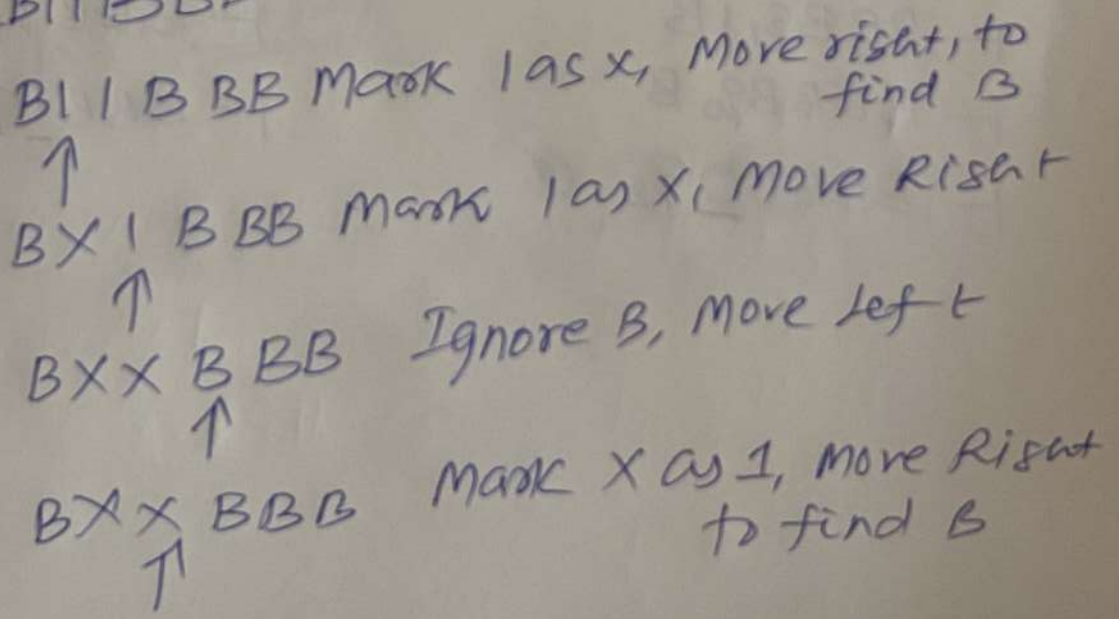 B11BBB Mark 1 as x, Move right, to
find B
↑
BX1BBB Mark 1 as X, Move Right
↑
BXXBBB Ignore B, Move Left
↑
BXXBBB Mark X as 1, Move Right
to find B
↑